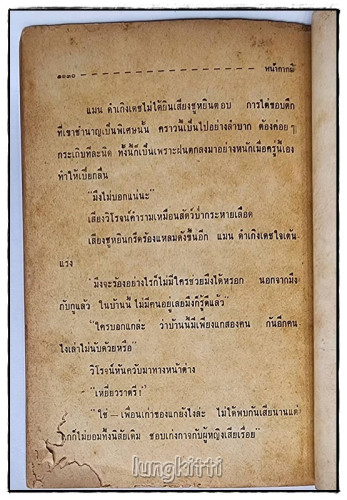 ๑๐๓๐ หน้ากากผี
แมน ดำเกิงเดชไม่ได้ยินเสียงชูหยินตอบ การไต่ขอบตึก
ที่เขาชำนาญเป็นพิเศษนั้น คราวนี้เป็นไปอย่างลำบาก ต้องค่อยๆ
กระเถิบทีละนิด ทั้งนี้ก็เป็นเพราะฝนตกลงมาอย่างหนักเมื่อครู่นี้เอง
ทำให้เปียกลื่น
“มึงไม่บอกแน่นะ”
เสียงวิโรจน์คำรามเหมือนสัตว์ป่ากระหายเลือด
เสียงชูหยินกรีดร้องแหลมดังขึ้นอีก แมน ดำเกิงเดชใจเต้น
แรง
“มึงจะร้องอย่างไรก็ไม่มีใครช่วยมึงได้หรอก นอกจากมึง
กับกูแล้ว ในบ้านนี้ ไม่มีคนอยู่เลยมึงก็รู้ดีแล้ว”
“ใครบอกแกล่ะ ว่าบ้านนี้มีเพียงแกสองคน กันอีกคน
ไงเล่าไม่นับด้วยหรือ”
วิโรจน์หันควับมาทางหน้าต่าง
“เหยี่ยวราตรี !”
“ใช่ — เพื่อนเก่าของแกยังไงล่ะ ไม่ได้พบกันเสียนานแต่
แกก็ไม่ยอมทิ้งนิสัยเดิม ชอบเก่งกาจกับผู้หญิงเสียเรื่อย”
lungkitti